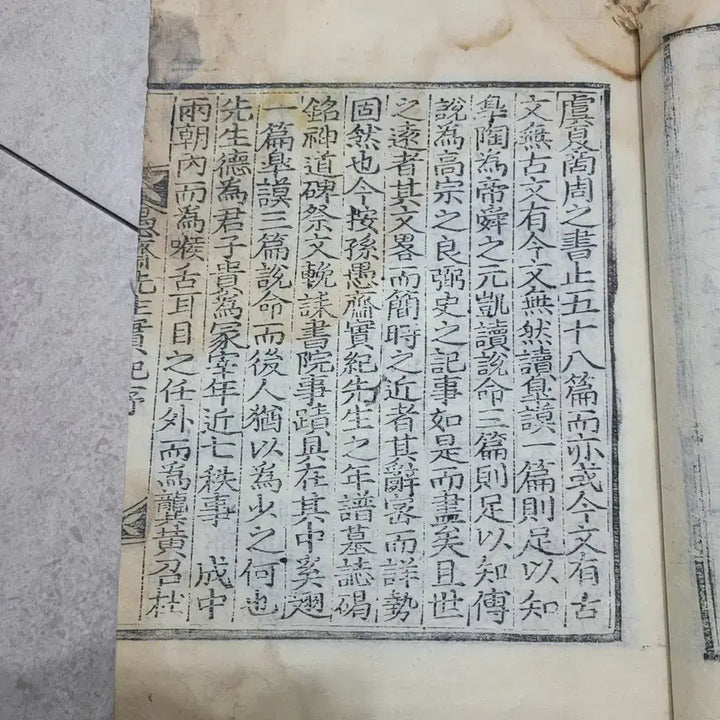 虞夏商周之書止五十八篇而亦或今文有古
文無古文有今文無然讀臯謨一篇則足以知
臯陶為帝舜之元凱讀說命三篇則足以知傅
說為高宗之良弼史之記事如是而盡矣且世
之逺者其文畧而簡時之近者其辭宻而詳勢
固然也今按孫愚齋實紀先生之年譜墓誌碣
銘神道碑祭文輓誄書院事蹟具在其中奚翅
一篇臯謨三篇說命而後人猶以為少之何也
先生德為君子貴為冢宰年近七秩事 成中
兩朝內而為喉舌耳目之任外而為龔黃召杜
愚齋先生實紀序